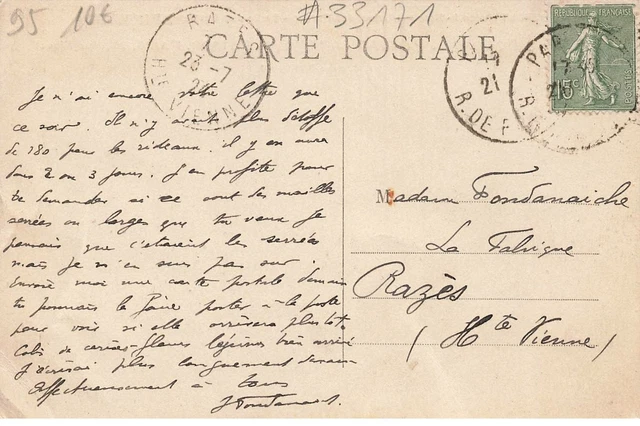 95 10€ #33171
CARTE POSTALE
RAZES
23-7
21
HTE VIENNE
21
R. DE P
PAR
215
REPUBLIQUE FRANÇAISE
15c
POSTES
Je n'ai encore votre lettre que
ce soir. Il n'y avait plus d'étoffe
de 180 pour les rideaux. il y en aura
dans 2 ou 3 jours. J'en profite pour
te demander si ce sont des mailles
serrées ou larges que tu veux Je
pensais que c'étaient les serrées
mais je n'en suis pas sur.
Envoie moi une carte postale demain
tu pourrais la faire porter à la poste
pour voir si elle arrivera plus tôt.
Colis de cerises légumes bien arrivé
J'écrirai plus longuement demain
Affectueusement à tous
J Fondanaiche.
Madame Fondanaiche
La Fabrique
Razès
(Hte Vienne)